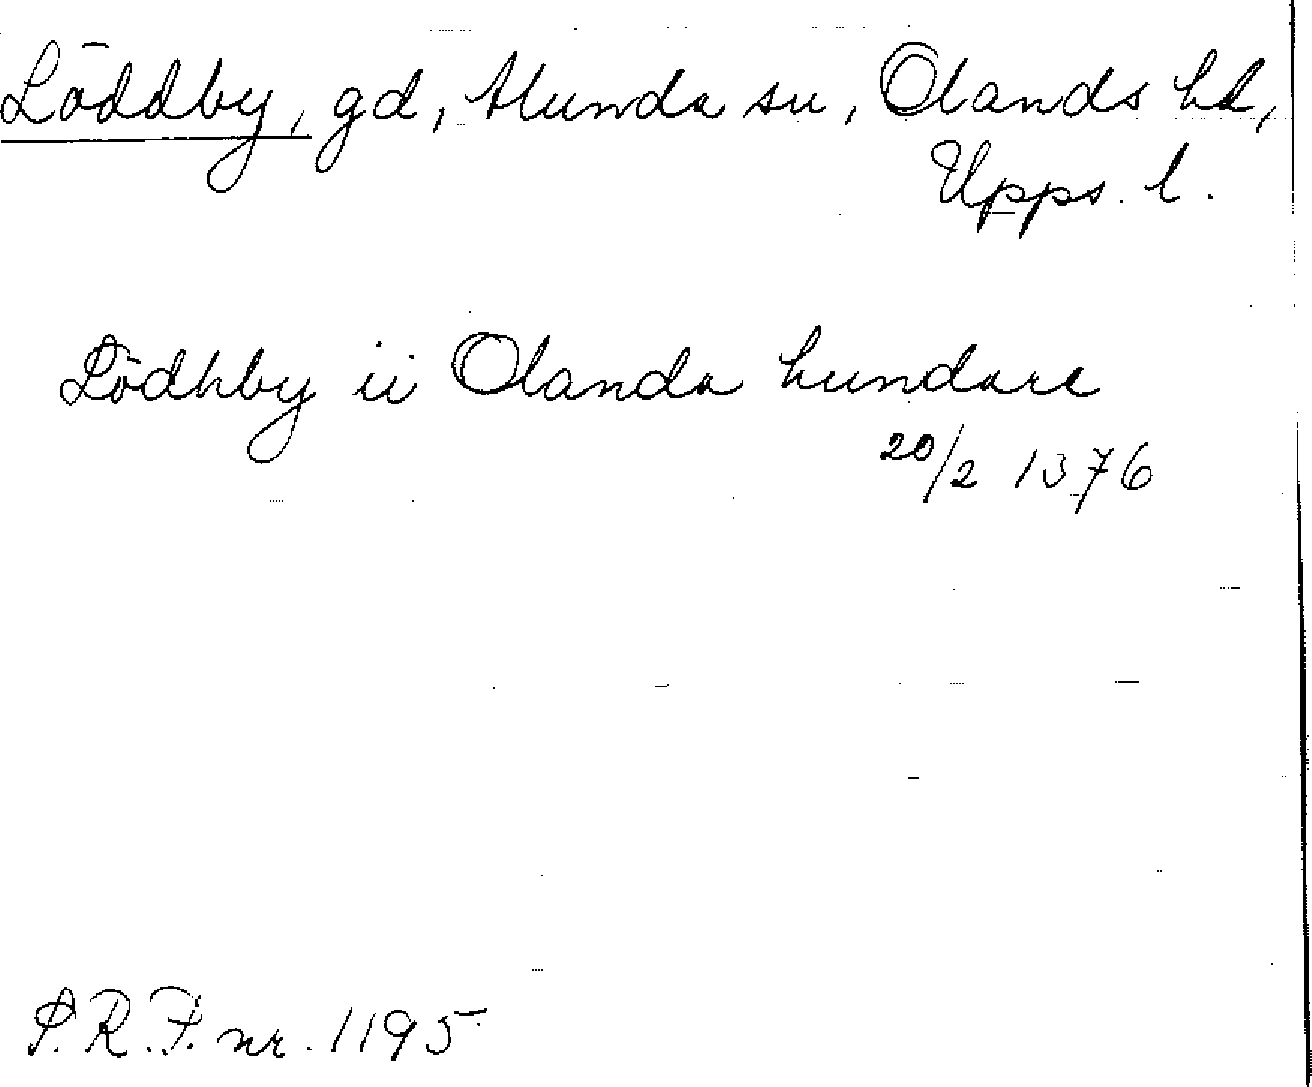 Löddby, gd, Alunda sn, Olands hd,
Upps. l.
Lödhby ii Olanda hundare
20/2 1376
S.R.P. nr. 1195